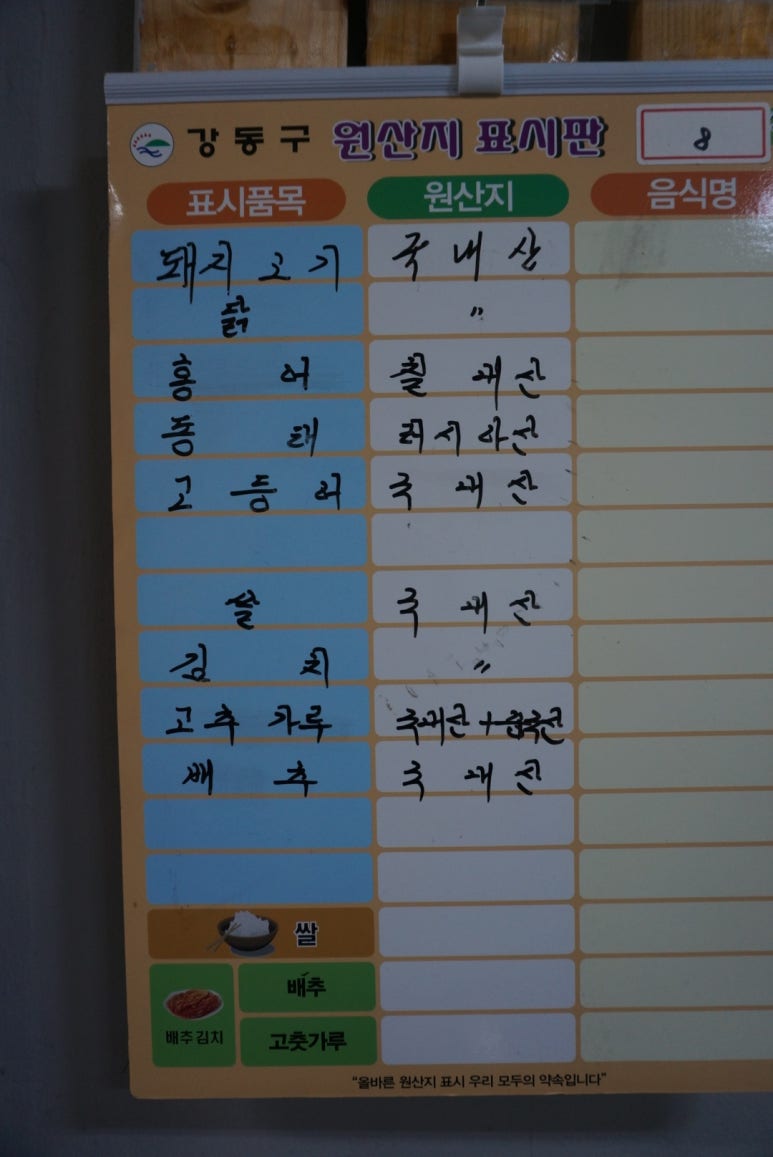 강동구 원산지 표시판 8
표시품목 원산지 음식명
돼지고기 국내산
닭 〃
홍어 칠레산
동태 러시아산
고등어 국내산
쌀 국내산
김치 〃
고추가루 국내산+중국산
배추 국내산
쌀
배추
배추김치
고춧가루
"올바른 원산지 표시 우리 모두의 약속입니다"